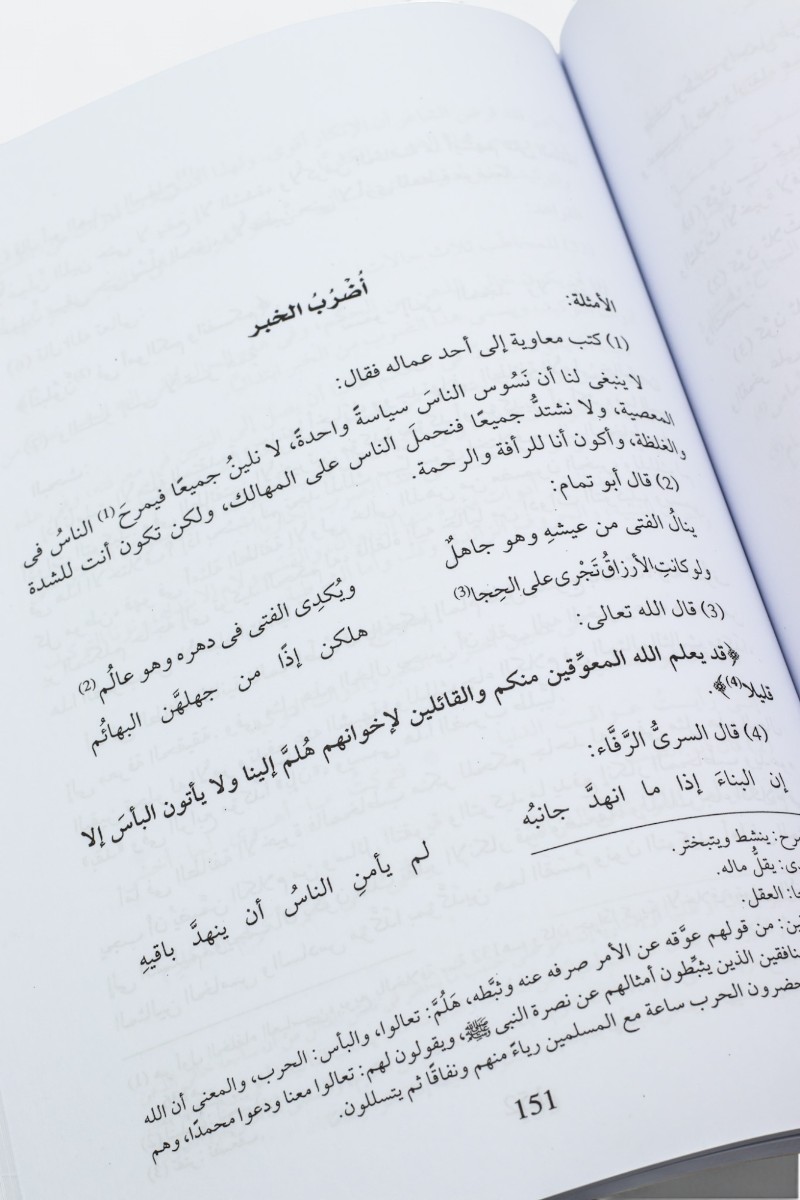 أُضْرُبُ الخبر
الأمثلة:
(1) كتب معاوية إلى أحد عماله فقال:
لا ينبغى لنا أن نَسُوس الناسَ سياسةً واحدةً، لا نلينُ جميعًا فيمرحَ(1) الناسُ فى
المعصية، ولا نشتدُّ جميعًا فنحملَ الناس على المهالك، ولكن تكون أنت للشدة
والغلظة، وأكون أنا للرأفة والرحمة.
(2) قال أبو تمام:
ينالُ الفتى من عيشهِ وهو جاهلٌ ويُكدِى الفتى فى دهره وهو عالُم(2)
ولو كانتِ الأرزاقُ تَجْرى على الحِجا(3) هلكن إذًا من جهلهَّن البهائُم
(3) قال الله تعالى:
﴿قد يعلم الله المعوِّقين منكم والقائلين لإخوانهم هُلمَّ إلينا ولا يأتون البأسَ إلا
قليلا(4)﴾.
(4) قال السرىُّ الرَّفَّاء:
إن البناءَ إذا ما انهدَّ جانبُه لم يأمنِ الناسُ أن ينهدَّ باقيهِ
ينشط ويتبختر.
يقلُّ ماله.
العقل.
من قولهم عوَّقه عن الأمر صرفه عنه وثبَّطه، هَلُمَّ: تعالوا، والبأس: الحرب، والمعنى أن الله
الذين يثبِّطون أمثالهم عن نصرة النبى ﷺ، ويقولون لهم: تعالوا معنا ودعوا محمدًا، وهم
الحرب ساعة مع المسلمين رياءً منهم ونفاقًا ثم يتسللون.
151